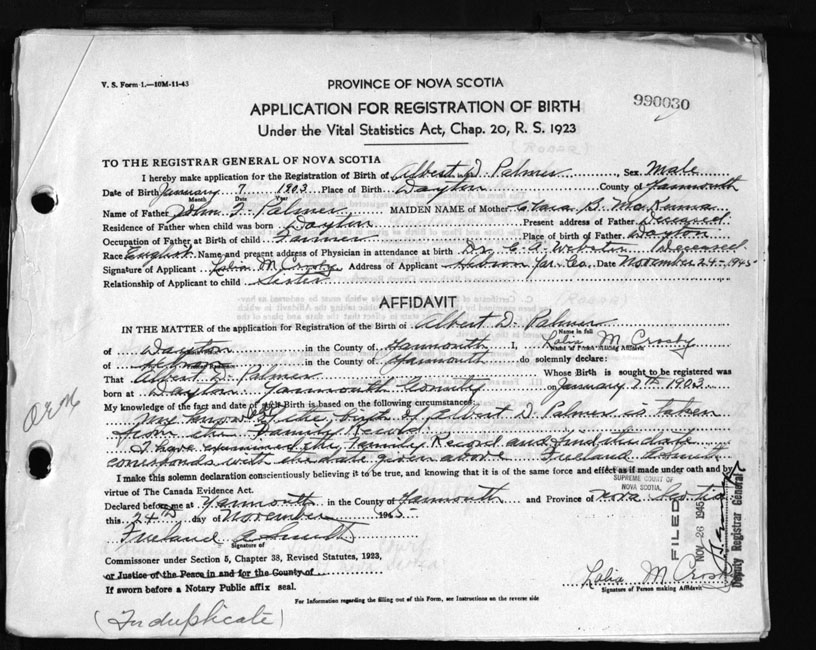 V. S. Form 1.—10M-11-43
PROVINCE OF NOVA SCOTIA
990030
APPLICATION FOR REGISTRATION OF BIRTH
Under the Vital Statistics Act, Chap. 20, R. S. 1923
TO THE REGISTRAR GENERAL OF NOVA SCOTIA
I hereby make application for the Registration of Birth of Albert D. Palmer, Sex Male
Date of Birth January 7 1903 Place of Birth Dayton County of Yarmouth
Month Date Year
Name of Father John F. Palmer MAIDEN NAME of Mother Clara B. MacKinna
Residence of Father when child was born Dayton Present address of Father deceased
Occupation of Father at Birth of child Farmer Place of birth of Father Dayton
Race English Name and present address of Physician in attendance at birth Dr. C. A. Webster Deceased
Signature of Applicant M. Crosby Address of Applicant Hebron Yar. Co. Date November 24 - 1945
Relationship of Applicant to child Sister
AFFIDAVIT
IN THE MATTER of the application for Registration of the Birth of Albert D. Palmer
Name in full
of Dayton in the County of Yarmouth I, M Crosby
Name of Person making Affidavit
of in the County of Yarmouth do solemnly declare:
That Albert D. Palmer Whose Birth is sought to be registered was
born at Dayton Yarmouth County on January 7th 1903
My knowledge of the fact and date of such Birth is based on the following circumstances:
My knowledge of the birth of Albert D Palmer is taken
from the Family Record
I have examined the Family Record and find the date
corresponds with the date given above Freeland A Smith
I make this solemn declaration conscientiously believing it to be true, and knowing that it is of the same force and effect as if made under oath and by
virtue of The Canada Evidence Act.
SUPREME COURT OF
NOVA SCOTIA
Declared before me at Yarmouth in the County of Yarmouth and Province of Nova Scotia
this 24th day of November 1945
Freeland A Smith
Signature of
Commissioner under Section 5, Chapter 38, Revised Statutes, 1923,
or Justice of the Peace in and for the County of
If sworn before a Notary Public affix seal.
FILED
NOV 26 1945
Deputy Registrar General
M Crosby
Signature of Person making Affidavit
For Information regarding the filling out of this Form, see Instructions on the reverse side
(In duplicate)